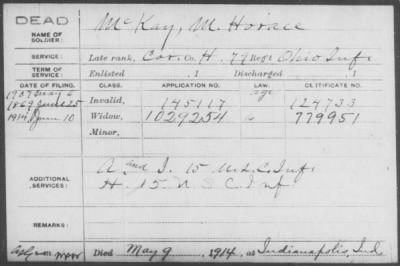 DEAD
NAME OF SOLDIER: McKay, M. Horace
SERVICE: Late rank, Cor. Co. H, 79 Reg't Ohio Inf.
TERM OF SERVICE: Enlisted , 1 Discharged , 1
DATE OF FILING. CLASS. APPLICATION NO. LAW. CERTIFICATE NO.
1907 May 6 age
1869 June 25 Invalid, 145117 124733
1914 June 10 Widow, 1029254 779951
Minor,
A and I. 15 U.S.C. Inf.
ADDITIONAL SERVICES: H. 15 U S C Inf
REMARKS:
Died May 9, 1914, at Indianapolis, Ind